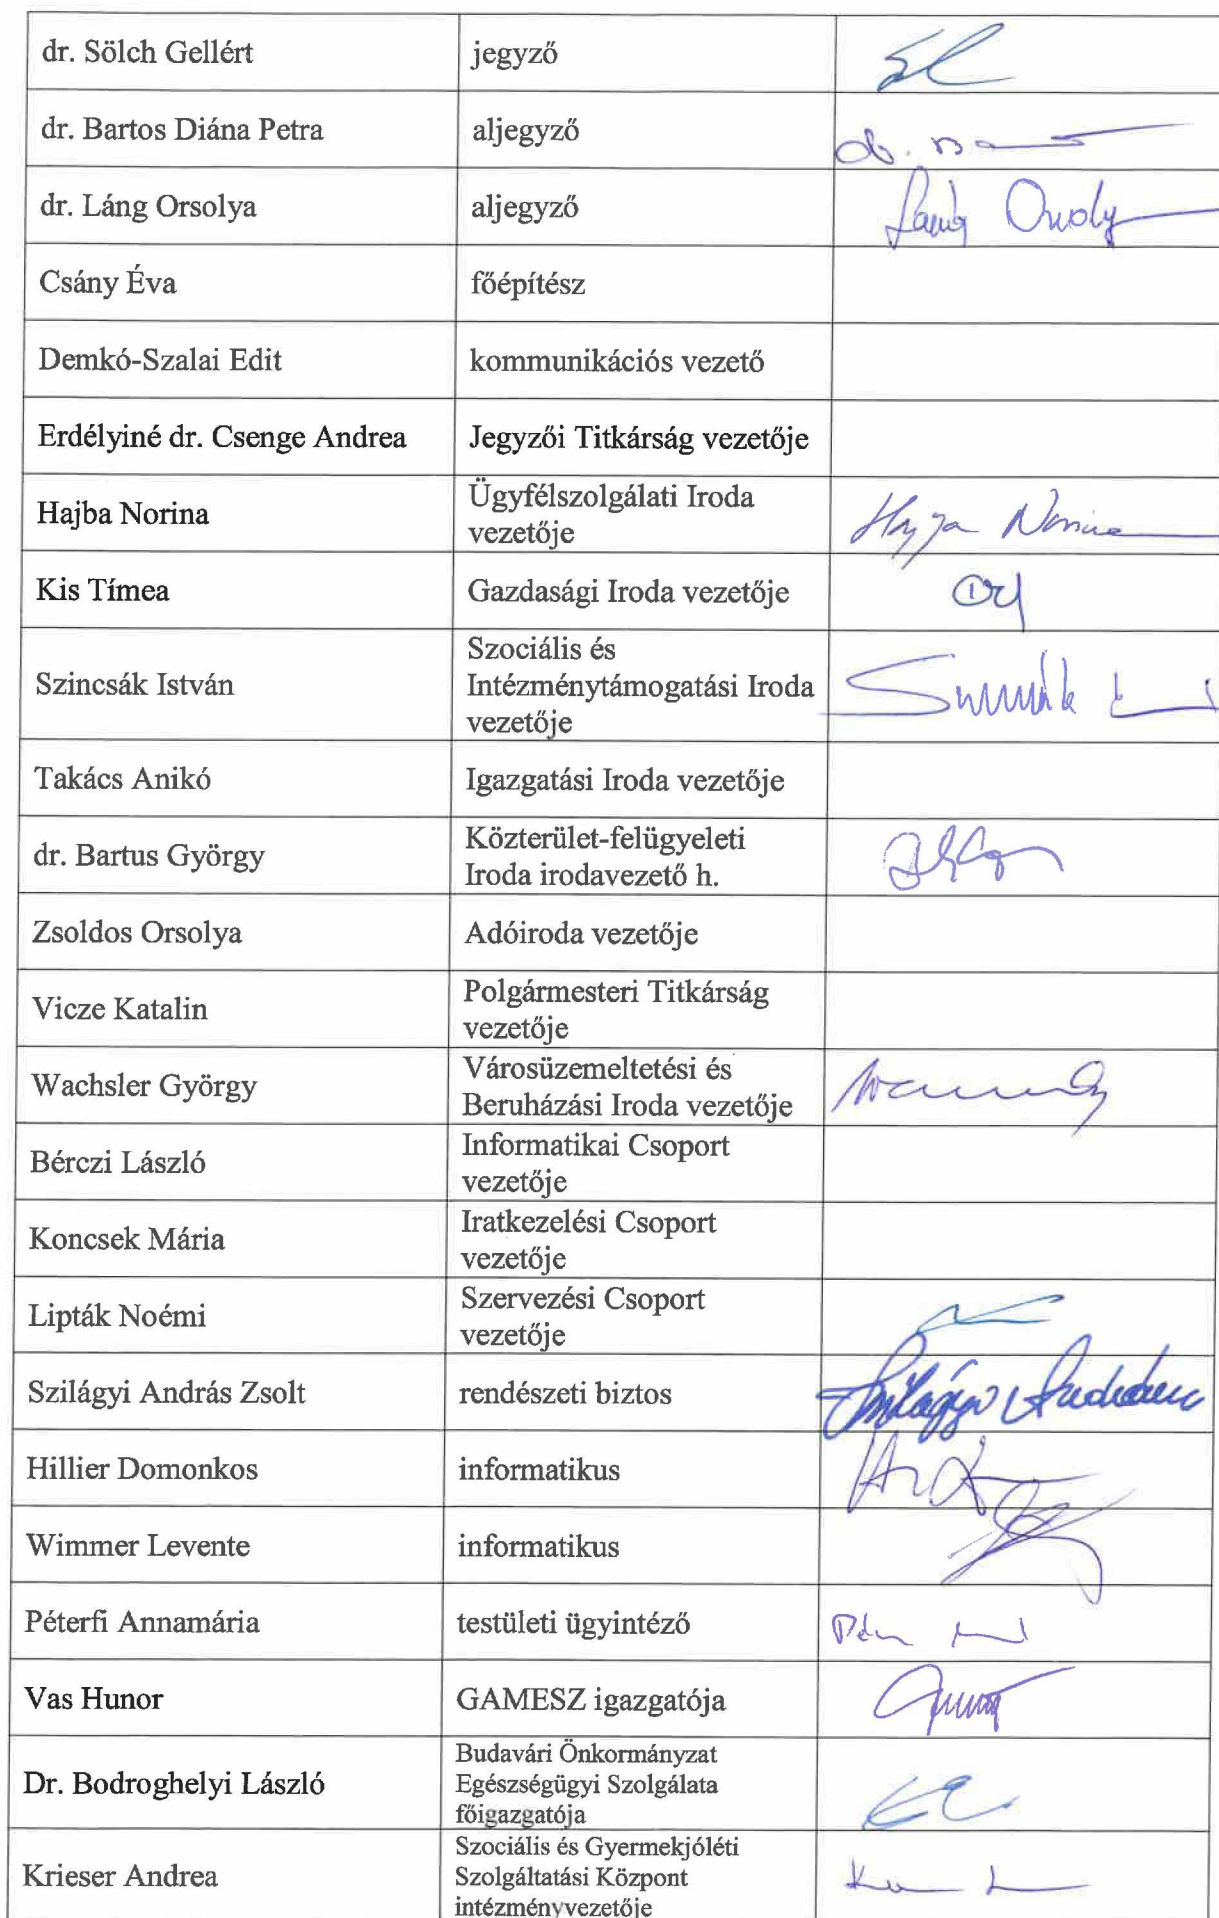 dr. Sölch Gellért
jegyző
dr. Bartos Diána Petra
aljegyző
dr. Láng Orsolya
aljegyző
Csány Éva
főépítész
Demkó-Szalai Edit
kommunikációs vezető
Erdélyiné dr. Csenge Andrea
Jegyzői Titkárság vezetője
Hajba Norina
Ügyfélszolgálati Iroda
vezetője
Kis Tímea
Gazdasági Iroda vezetője
Szincsák István
Szociális és
Intézménytámogatási Iroda
vezetője
Takács Anikó
Igazgatási Iroda vezetője
dr. Bartus György
Közterület-felügyeleti
Iroda irodavezető h.
Zsoldos Orsolya
Adóiroda vezetője
Vicze Katalin
Polgármesteri Titkárság
vezetője
Wachsler György
Városüzemeltetési és
Beruházási Iroda vezetője
Bérczi László
Informatikai Csoport
vezetője
Koncsek Mária
Iratkezelési Csoport
vezetője
Lipták Noémi
Szervezési Csoport
vezetője
Szilágyi András Zsolt
rendészeti biztos
Hillier Domonkos
informatikus
Wimmer Levente
informatikus
Péterfi Annamária
testületi ügyintéző
Vas Hunor
GAMESZ igazgatója
Dr. Bodroghelyi László
Budavári Önkormányzat
Egészségügyi Szolgálata
főigazgatója
Krieser Andrea
Szociális és Gyermekjóléti
Szolgáltatási Központ
intézményvezetője